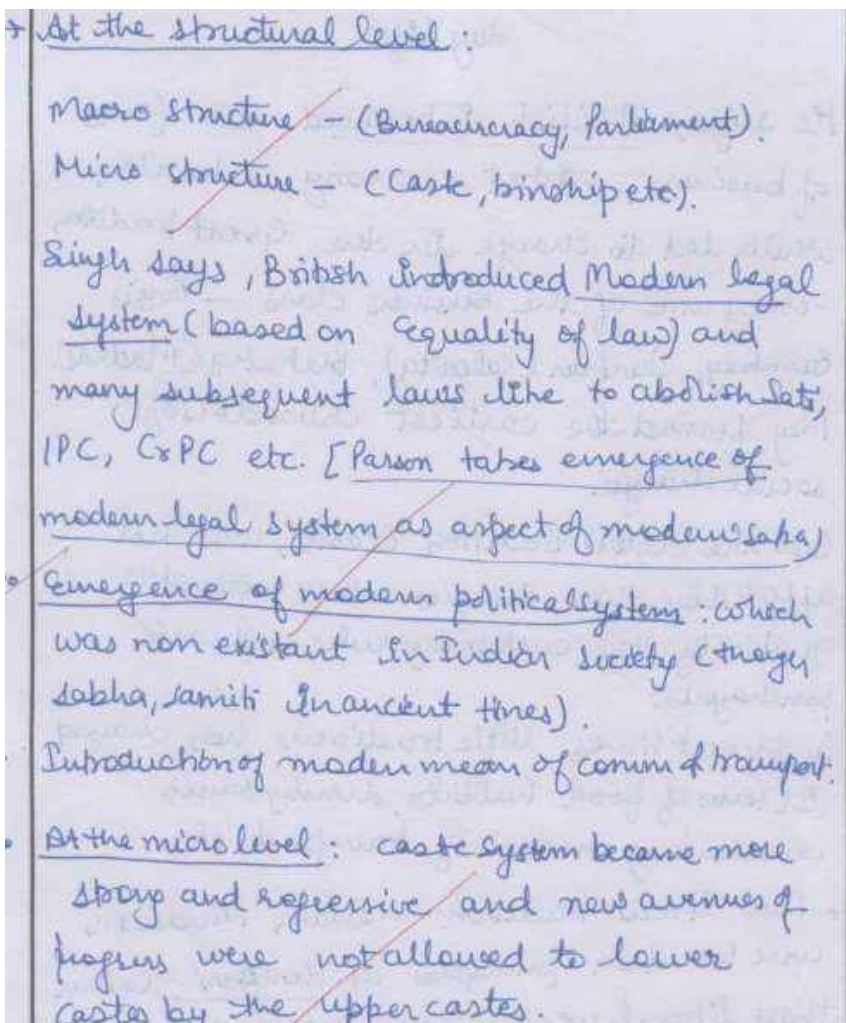 → At the structural level:
Macro structure – (Bureaucracy, Parliament).
Micro structure – (Caste, kinship etc).
Singh says, British introduced Modern legal
system (based on equality of law) and
many subsequent laws like to abolish Sati,
IPC, CrPC etc. [Parson takes emergence of
modern legal system as aspect of
• Emergence of modern political system: which
was non existant in Indian society (though
sabha, samiti in ancient times).
• Introduction of modern mean of comm & transport.
• At the micro level: caste system became more
strong and regressive and new avenues of
progress were not allowed to lower
castes by the upper castes.